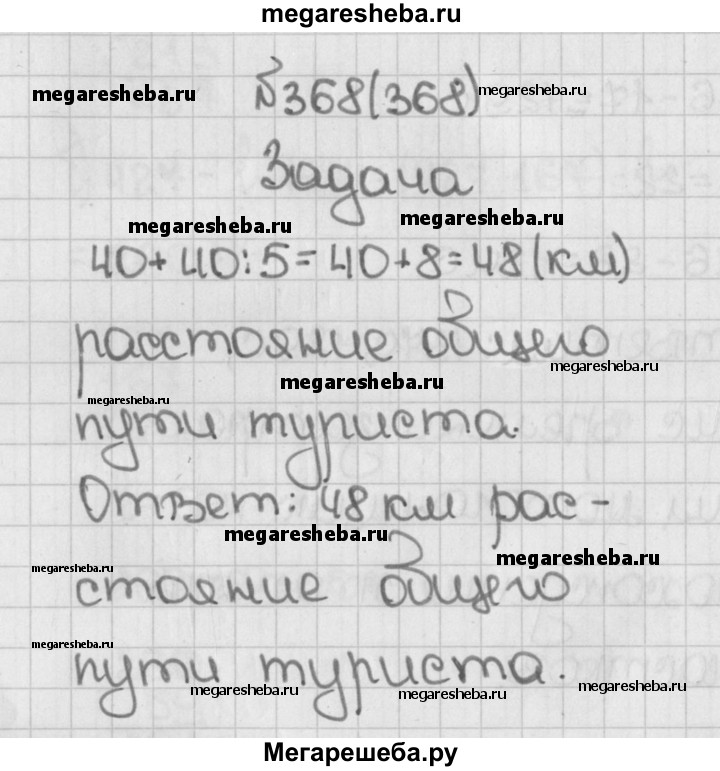 megaresheba.ru
megaresheba.ru
№368(368)
megaresheba.ru
Задача
megaresheba.ru
megaresheba.ru
40+40:5=40+8=48(км)
расстояние общего
megaresheba.ru
megaresheba.ru
megaresheba.ru
пути туриста.
Ответ: 48 км рас-
megaresheba.ru
megaresheba.ru
megaresheba.ru
стояние общего
megaresheba.ru
пути туриста.
megaresheba.ru
megaresheba.ru
megaresheba.ru
Мегарешеба.ру